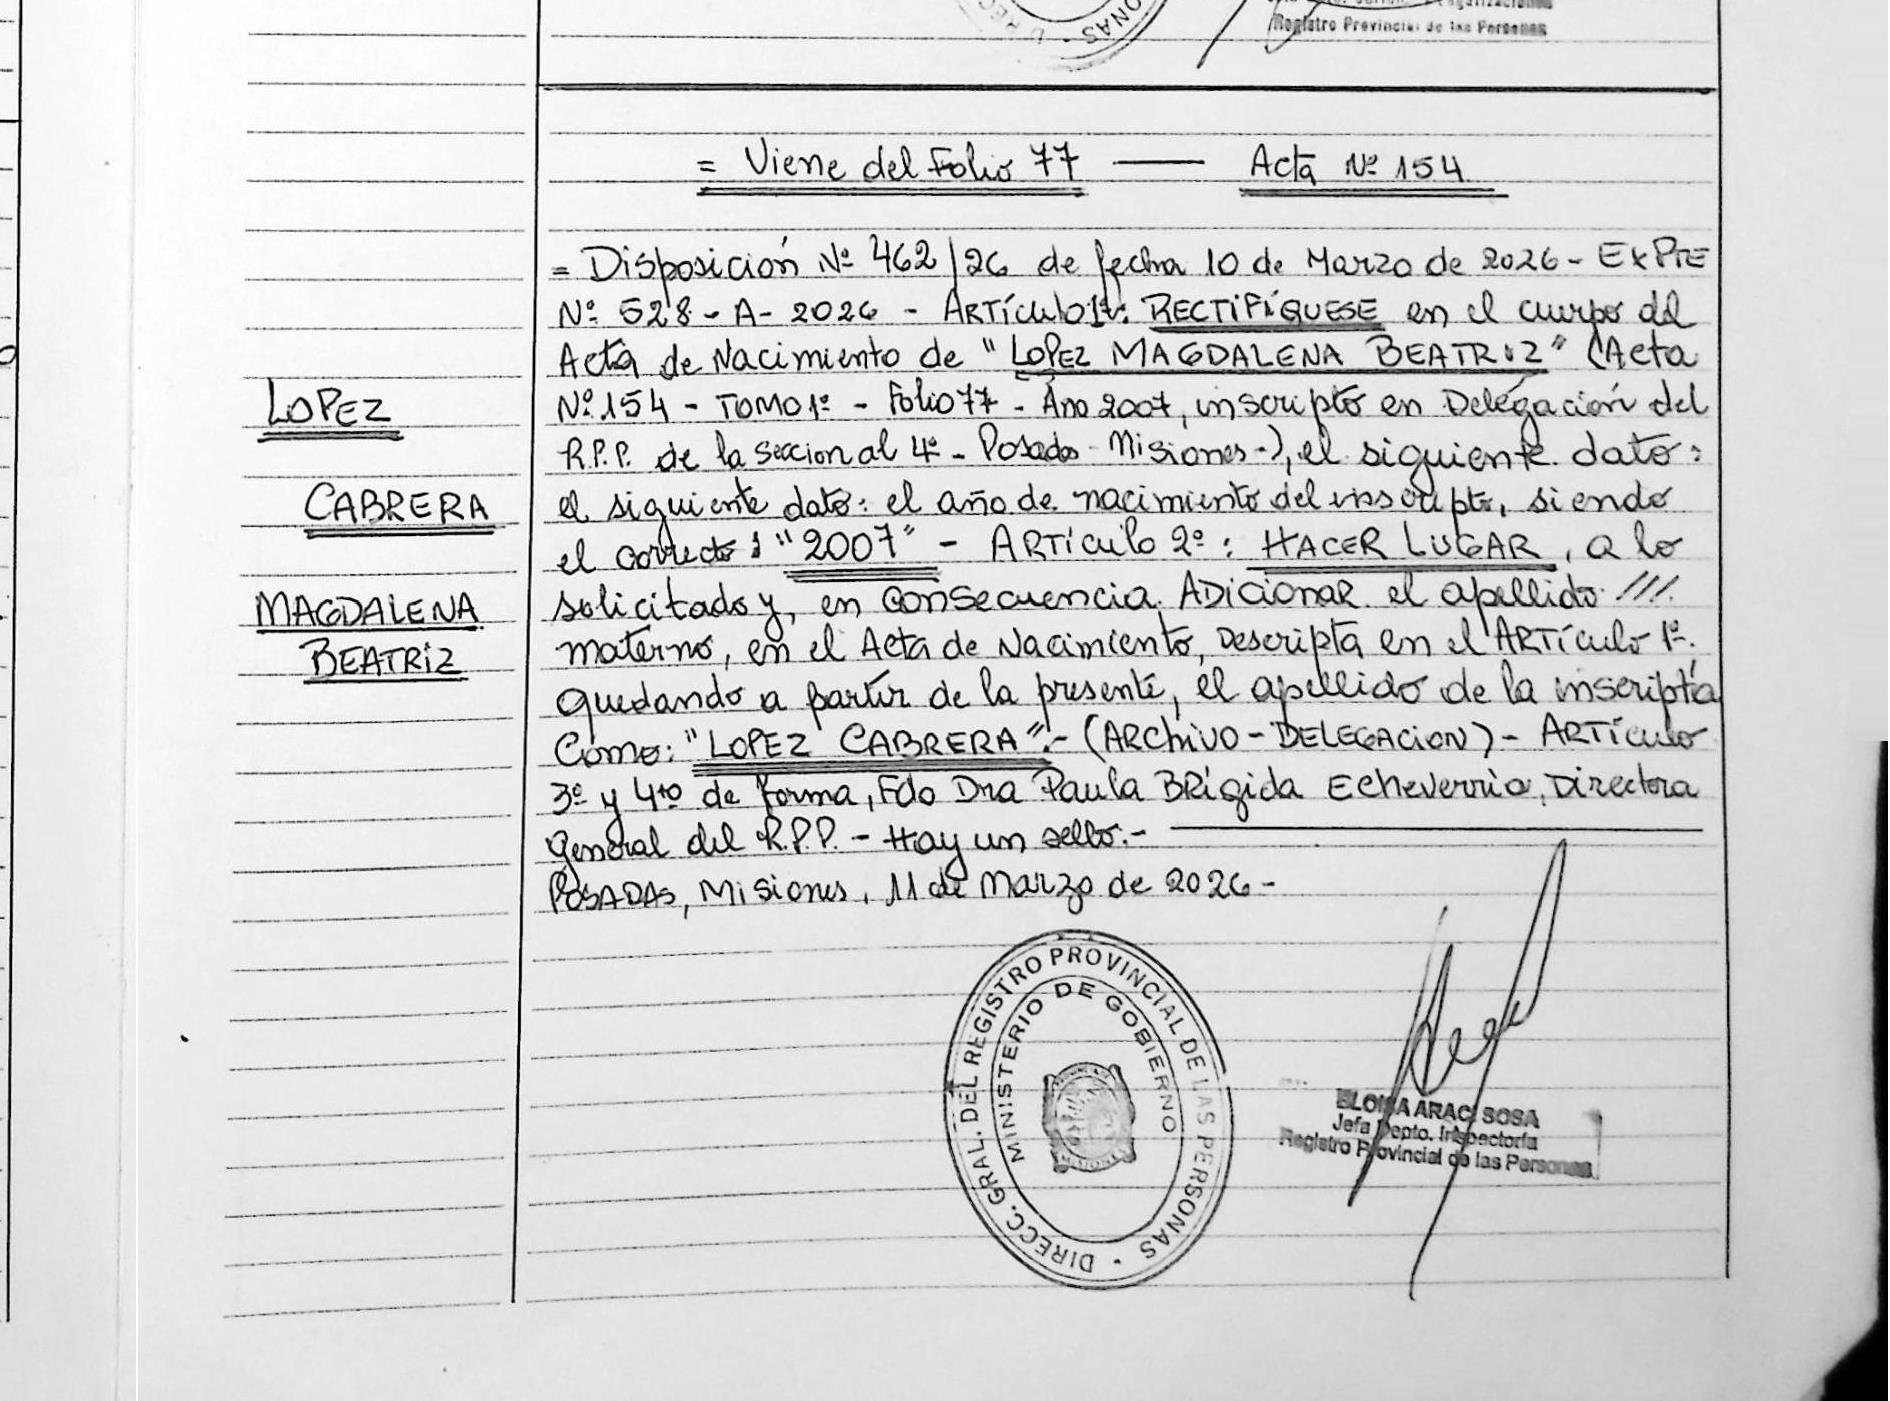 Registro Provincial de las Personas
= Viene del Folio 77 —— Acta Nº 154
= Disposición Nº 462/26 de fecha 10 de Marzo de 2026 - EXPTE
Nº 528 - A - 2026 - ARTículo 1º: RECTIFíQUESE en el cuerpo del
Acta de Nacimiento de "LOPEZ MAGDALENA BEATRIZ" (Acta
Nº 154 - TOMO 1º - Folio 77 - Año 2007, inscripto en Delegación del
R.P.P. de la Seccional 4º - Posadas - Misiones -), el siguiente dato:
el siguiente dato: el año de nacimiento del inscripto, siendo
el correcto: "2007" - ARTículo 2º: HACER LUGAR, a lo
solicitado y, en consecuencia, ADICIONAR el apellido ///
materno, en el Acta de Nacimiento, Descripta en el ARTículo 1º.
quedando a partir de la presente, el apellido de la inscripta
Como: "LOPEZ CABRERA".- (ARCHIVO - DELEGACION) - ARTículo
3º y 4to de forma, Fdo Dra Paula BRígida Echeverria, Directora
General del R.P.P. - Hay un sello.-
POSADAS, Misiones, 11 de Marzo de 2026 -
LOPEZ
CABRERA
MAGDALENA
BEATRIZ
DIRECC. GRAL. DEL REGISTRO PROVINCIAL DE LAS PERSONAS
MINISTERIO DE GOBIERNO
MISIONES
ELOISA ARACI SOSA
Jefa Depto. Inspectoría
Registro Provincial de las Personas